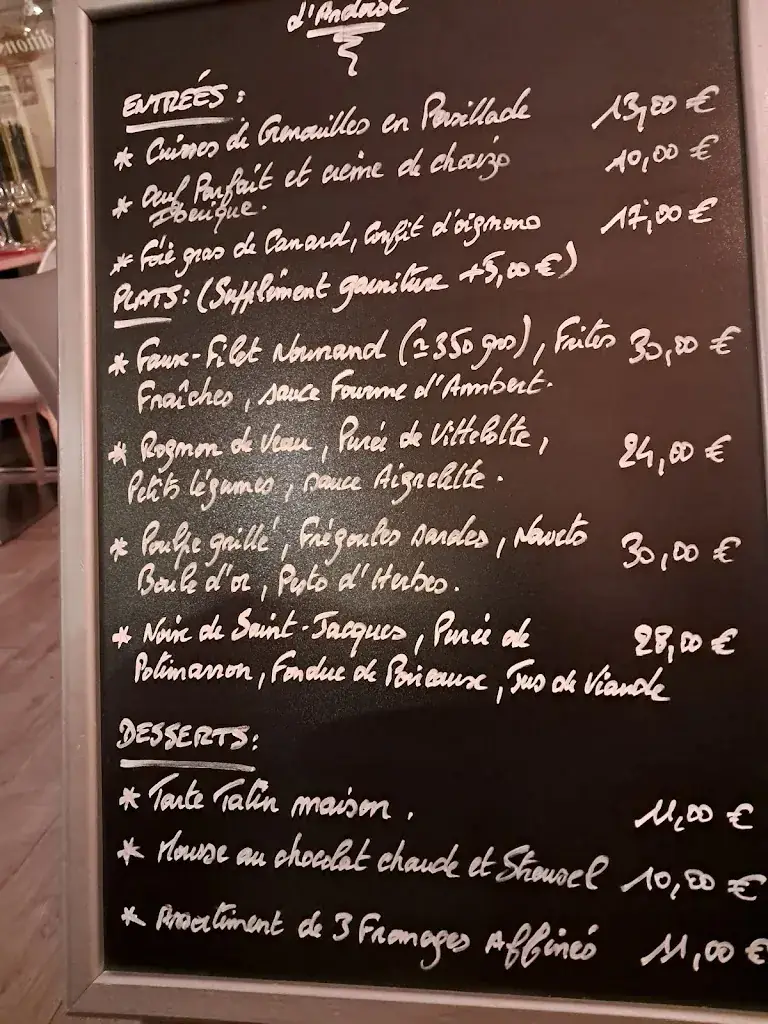 d'Ardoise
ENTRÉES :
* Cuisses de Grenouilles en Persillade 13,00 €
* Oeuf Parfait et crème de chorizo 10,00 €
Ibérique.
* Foie gras de Canard, Confit d'oignons 17,00 €
PLATS : (Supplément garniture +5,00 €)
* Faux-Filet Normand (≃350 grs), Frites 30,00 €
Fraîches, sauce Fourme d'Ambert.
* Rognon de Veau, Purée de Vittelotte, 24,00 €
Petits légumes, sauce Aigrelette.
* Poulpe grillé, Frégoules sardes, Navets 30,00 €
Boule d'or, Pesto d'Herbes.
* Noix de Saint-Jacques, Purée de 28,00 €
Potimarron, Fondue de Poireaux, Jus de Viande
DESSERTS :
* Tarte Tatin maison. 11,00 €
* Mousse au chocolat chaude et Streusel 10,00 €
* Assortiment de 3 Fromages Affinés 11,00 €